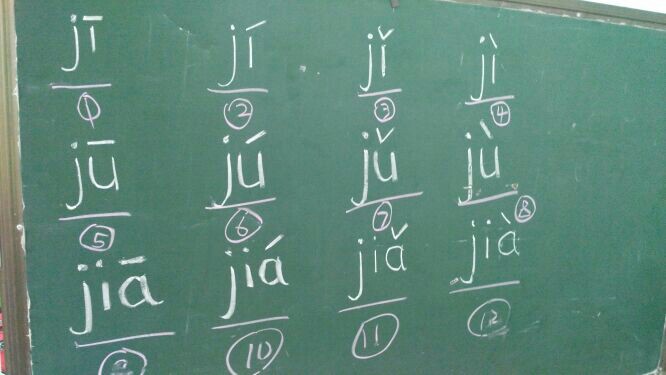 jī jí jǐ jì
① ② ③ ④
jū jú jǔ jù
⑤ ⑥ ⑦ ⑧
jiā jiá jiǎ jià
⑨ ⑩ ⑪ ⑫